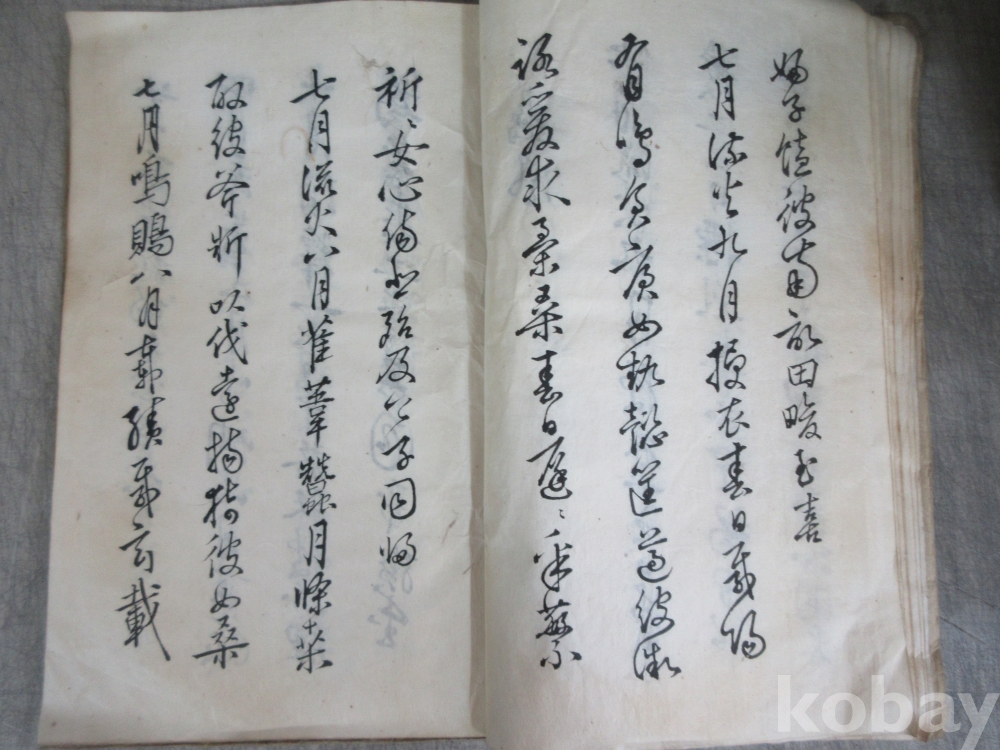 婦子饁彼南畝田畯至喜
七月流火九月授衣春日載陽
有鳴倉庚女執懿筐遵彼微
爰求柔桑春日遲〻采蘩
祈〻女心傷悲殆及公子同歸
七月流火八月萑葦蠶月條桑
取彼斧斨以伐遠揚猗彼女桑
七月鳴鵙八月載績載玄載
kobay